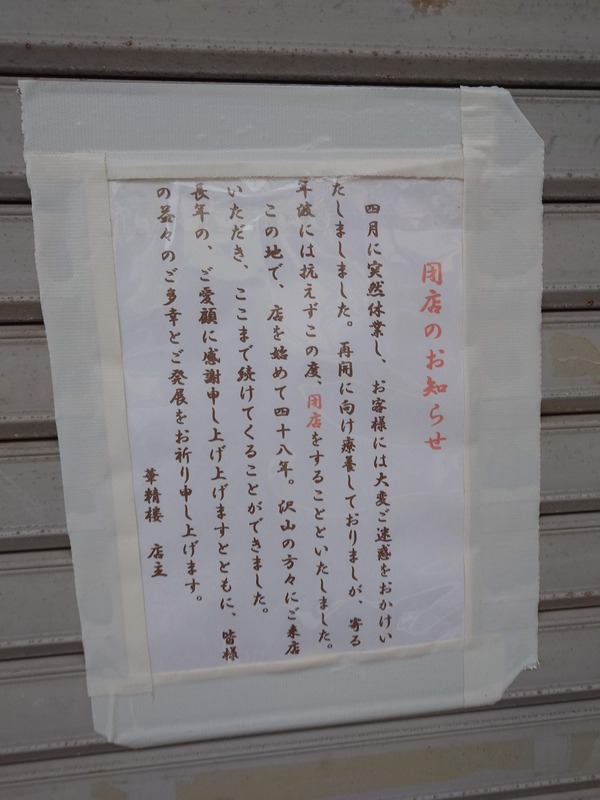 閉店のお知らせ
四月に突然休業し、お客様には大変ご迷惑をおかけい
たしましました。再開に向け療養しておりましが、寄る
年波には抗えずこの度、閉店をすることといたしました。
この地で、店を始めて四十八年。沢山の方々にご来店
いただき、ここまで続けてくることができました。
長年の、ご愛顧に感謝申し上げ上げますとともに、皆様
の益々のご多幸とご発展をお祈り申し上げます。
華精楼 店主